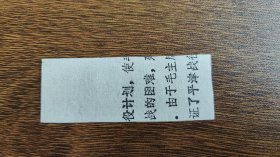 役计划，使
战的困难，
。由于毛主
证了平津战